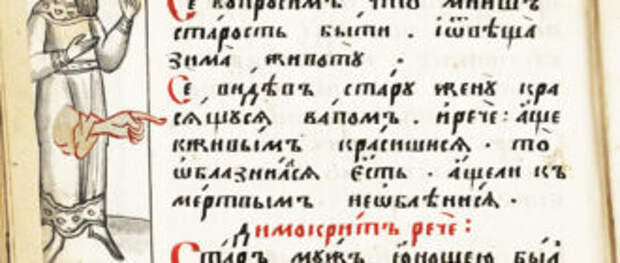 Се вопросимъ что мнишъ
старость быти . і ѿвѣща
зима животꙋ .
Се видѣвъ старꙋ женꙋ кра
сѧщꙋсѧ вапомъ . и рече : аще
к живымъ красишисѧ . то
ѡблазниласѧ є҆сть . аще ли къ
мертвымъ не ѡблѣнисѧ .
димокритъ рече :
Старъ мꙋжъ юношею был